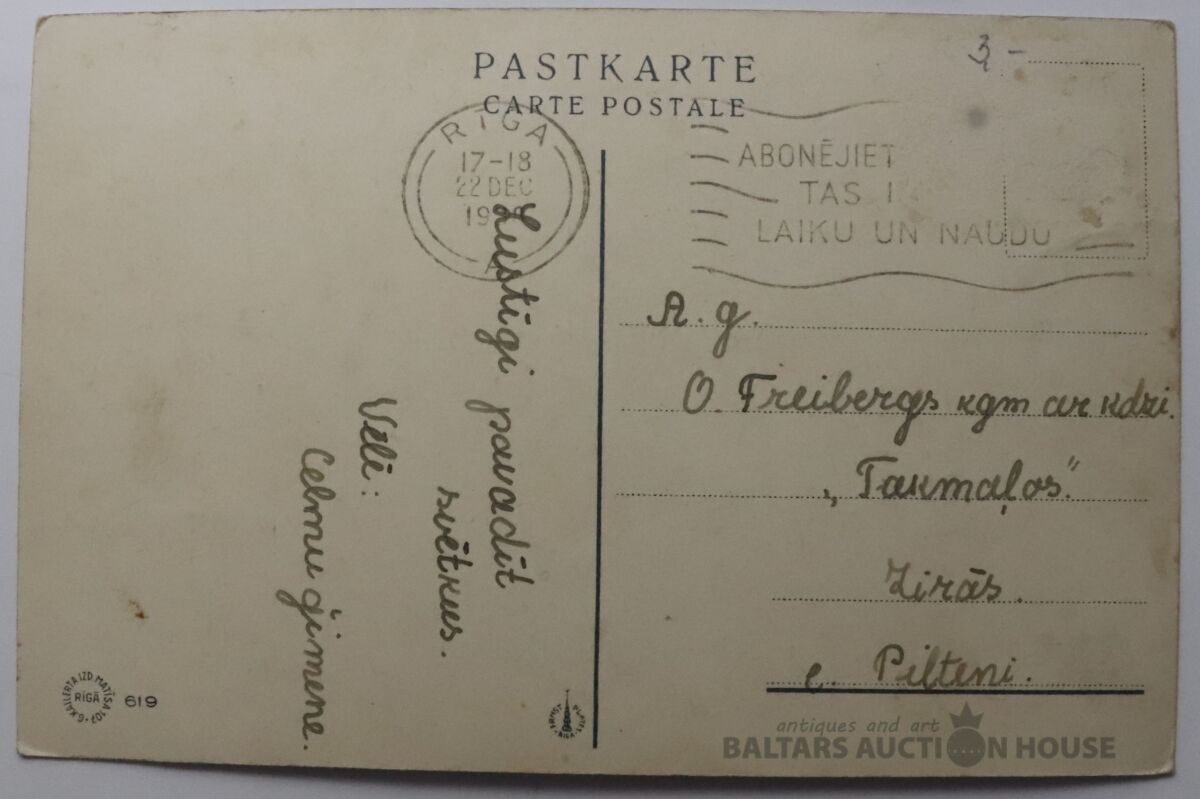 PASTKARTE
CARTE POSTALE
3 -
RĪGA
17-18
22 DEC
ABONĒJIET
TAS
LAIKU UN NAUDU
Lustigi pavadīt
svētkus.
Vēlē:
Celmu ģimene.
A. g.
O. Freibergs kgm ar kdzi.
„Takmaļos."
Zirās.
c. Pilteni.
G. KALLERTA IZD. MATĪSA 107
RĪGĀ
619
antiques and art
BALTARS AUCTION HOUSE